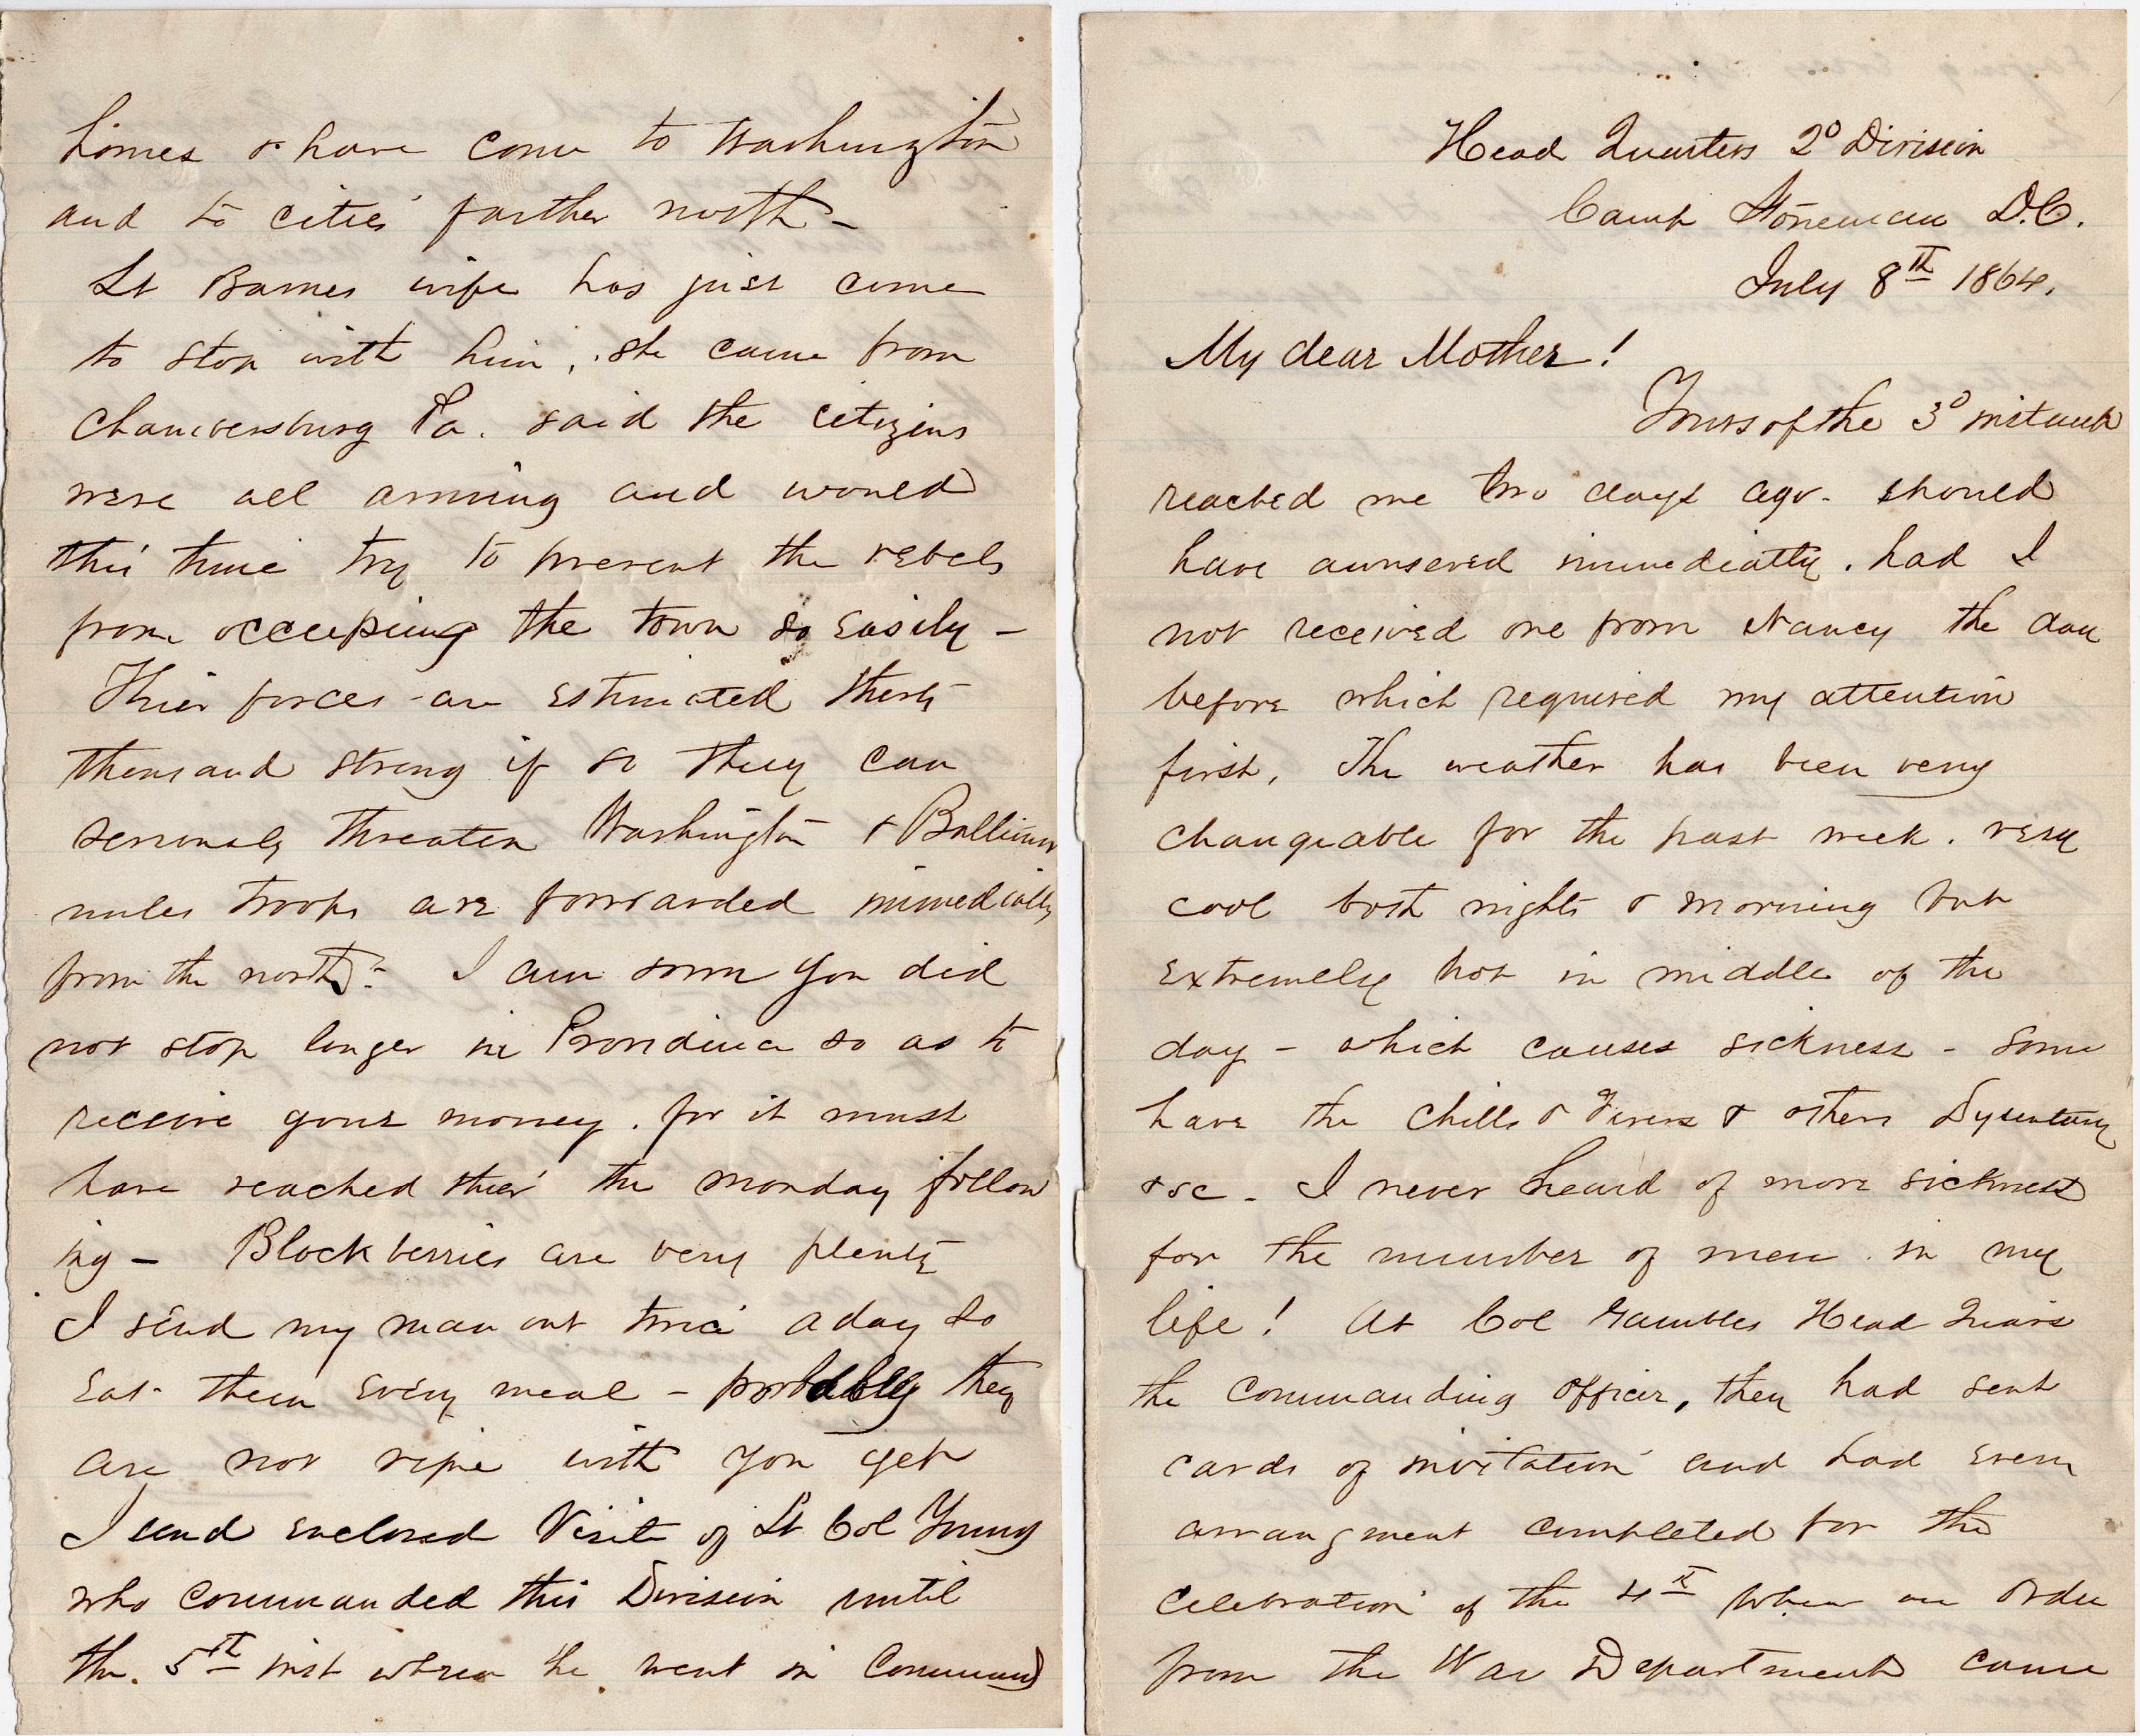 homes & have come to Washington
and to cities farther north –
Lt Barnes wife has just come
to stop with him, she came from
Chambersburg Pa. said the citizens
were all arming and would
this time try to prevent the rebels
from occupying the town so easily –
Thier forces are estimated thirty
thousand strong if so they can
seriously threaten Washington & Baltimore
unless troops are forwarded immediatly
from the north – I am sorry you did
not stop longer in Providence so as to
receive your money. for it must
have reached thier the monday follow
ing – Blackberries are very plenty
I send my man out twice a day so
eat them every meal – probably they
are not ripe with you yet
I send enclosed Visite of Lt Col Young
who commanded this Division until
the 5th inst when he went in Command
Head Quarters 2d Division
Camp Stoneman D.C.
July 8th 1864.
My dear Mother!
Yours of the 3d instant
reached me two days ago. should
have awnsered immediatly. had I
not received one from Nancy the day
before which required my attention
first, The weather has been very
changeable for the past week. very
cool both nights & morning but
extremely hot in middle of the
day – which causes sickness – some
have the chills & Fevers & others Dysentary
&c – I never heard of more sickness
for the number of men in my
life! At Col Gambles Head Quars
the commanding officer, they had sent
cards of invitation and had every
arrangment completed for the
celebration of the 4th when an order
from the War Department came